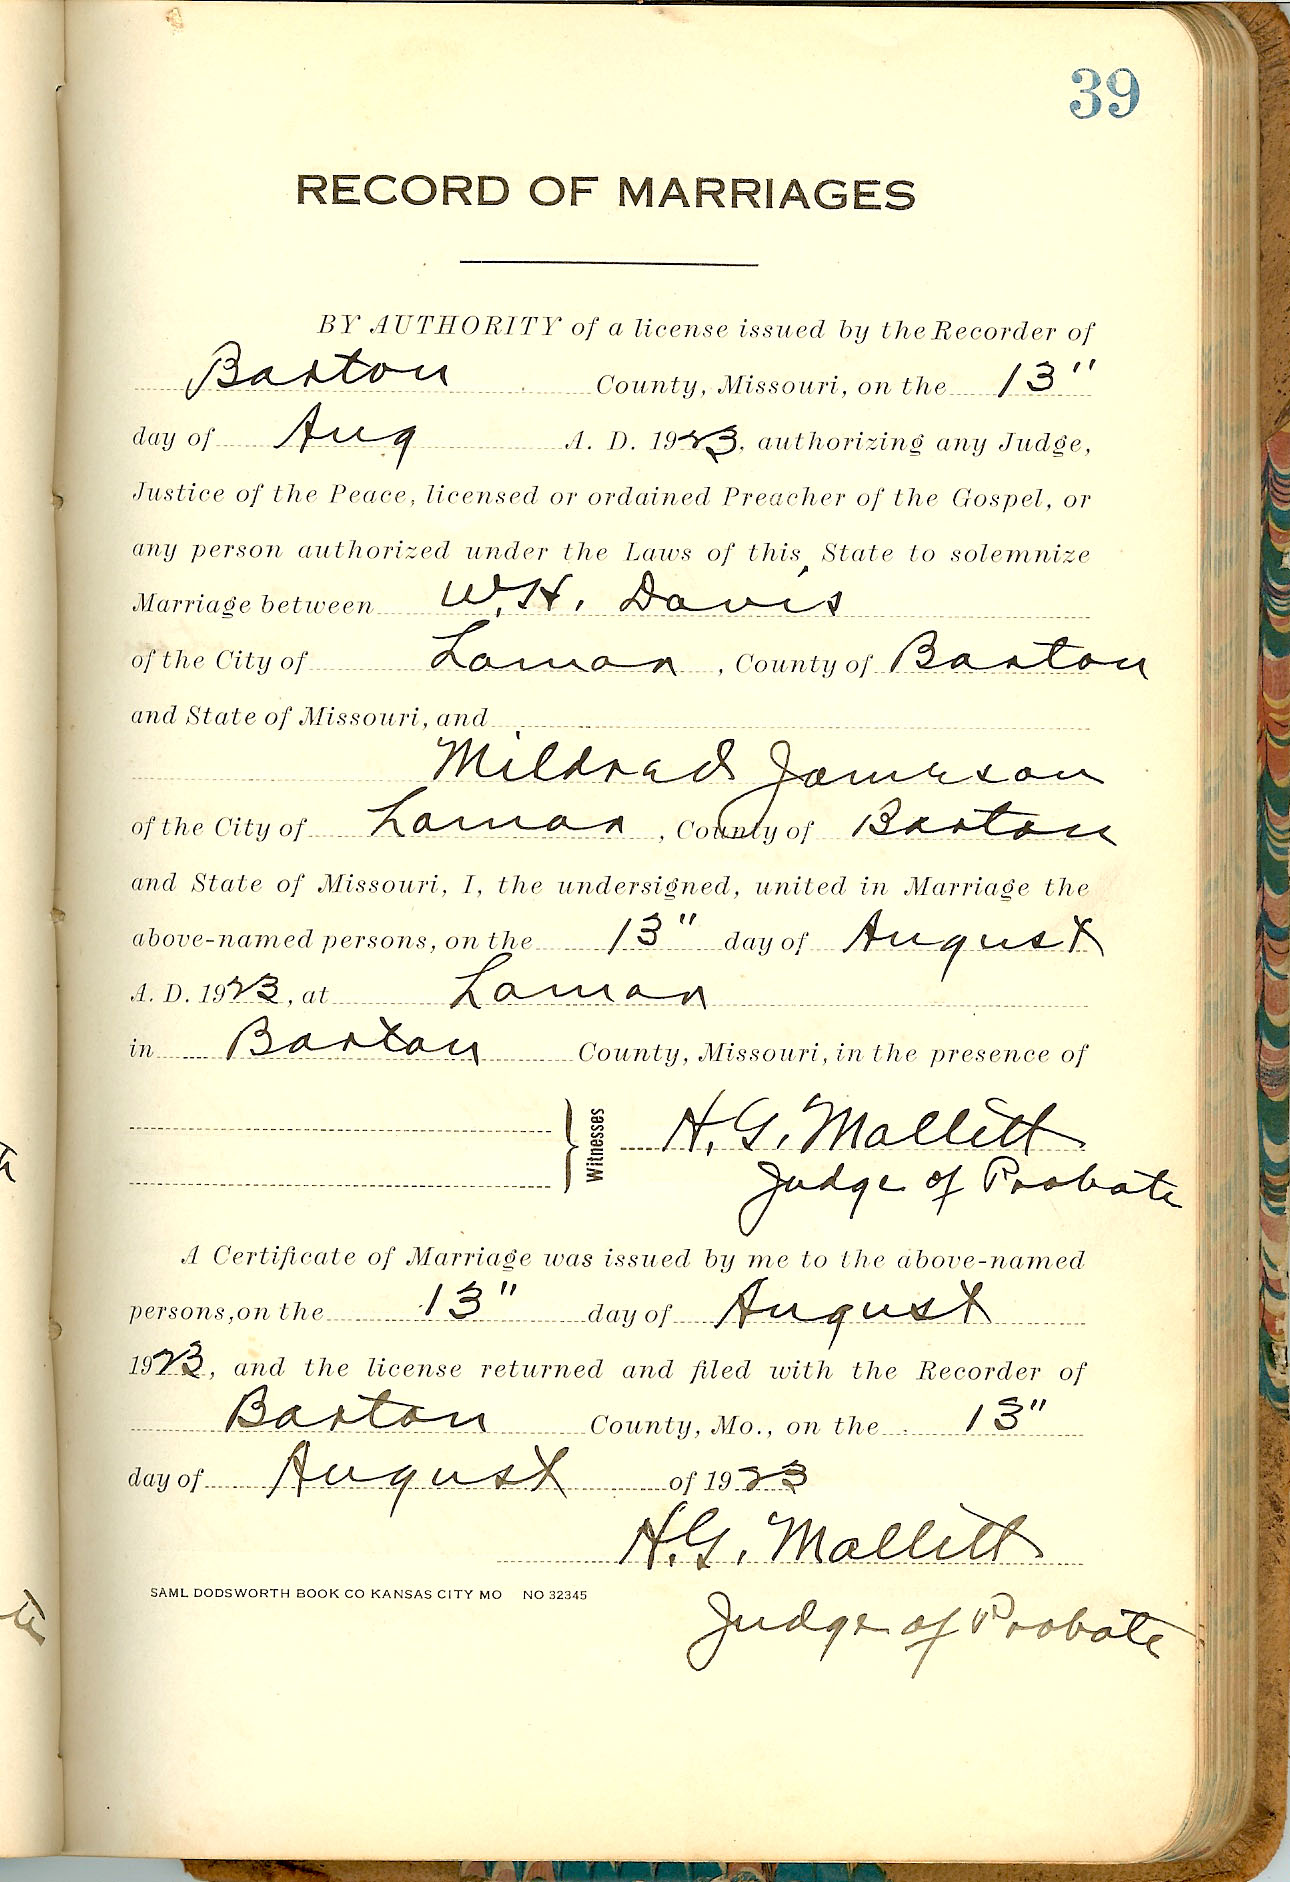 39
RECORD OF MARRIAGES
BY AUTHORITY of a license issued by the Recorder of
Barton County, Missouri, on the 13"
day of Aug A. D. 1923, authorizing any Judge,
Justice of the Peace, licensed or ordained Preacher of the Gospel, or
any person authorized under the Laws of this State to solemnize
Marriage between W. H. Davis
of the City of Lamar, County of Barton
and State of Missouri, and
Mildred Jameson
of the City of Lamar, County of Barton
and State of Missouri, I, the undersigned, united in Marriage the
above-named persons, on the 13" day of August
A. D. 1923, at Lamar
in Barton County, Missouri, in the presence of
Witnesses H. G. Mallitt
Judge of Probate
A Certificate of Marriage was issued by me to the above-named
persons, on the 13" day of August
1923, and the license returned and filed with the Recorder of
Barton County, Mo., on the 13"
day of August of 1923
H. G. Mallitt
SAML DODSWORTH BOOK CO KANSAS CITY MO NO 32345
Judge of Probate